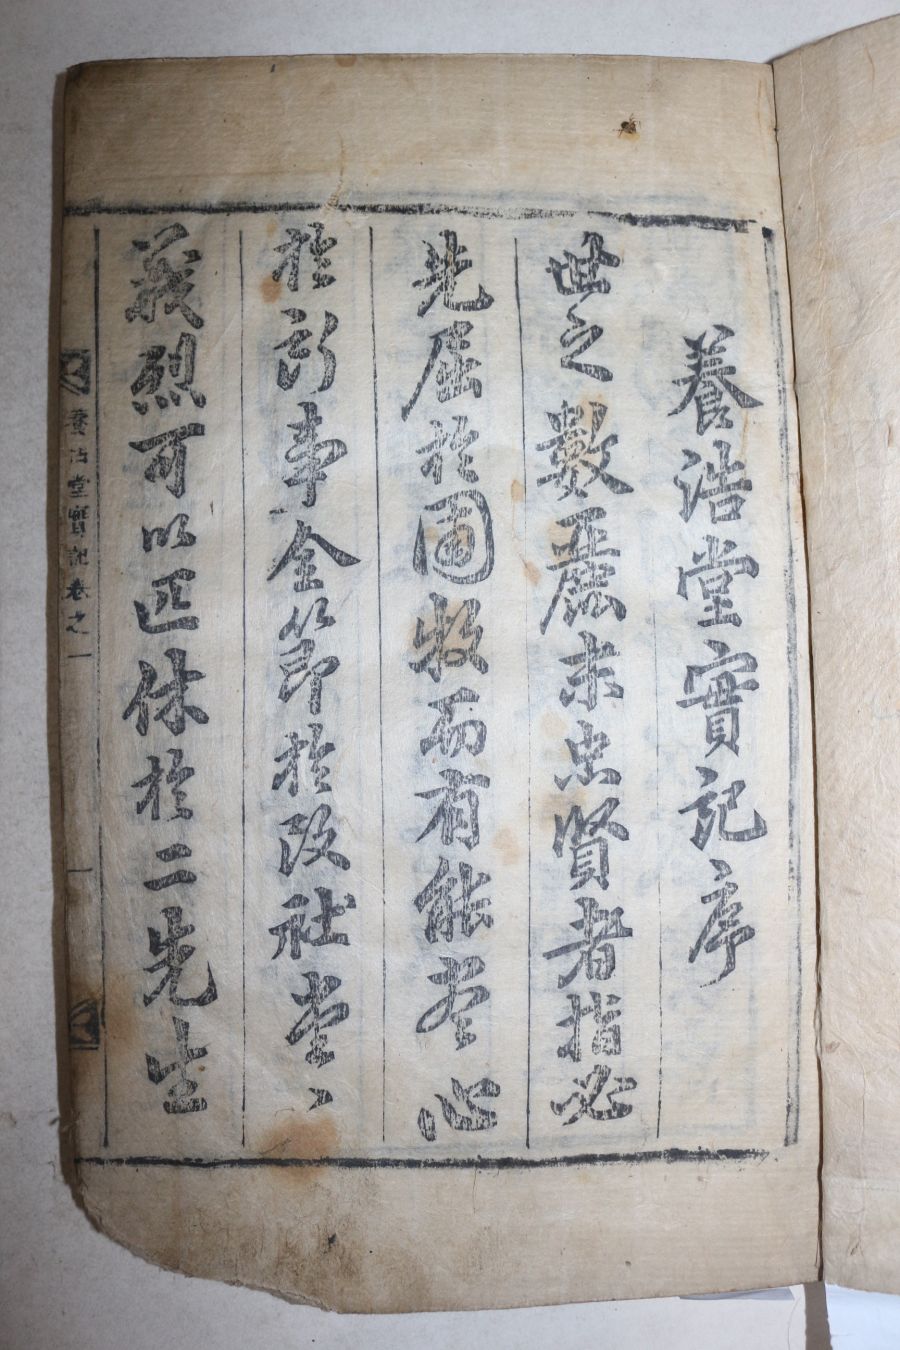 養浩堂實記序
世之數麗末忠賢者指必
先屈於圃牧而有能盡心
於所事全節於改社堂〻
義烈可以匹休於二先生
養浩堂實記卷之一